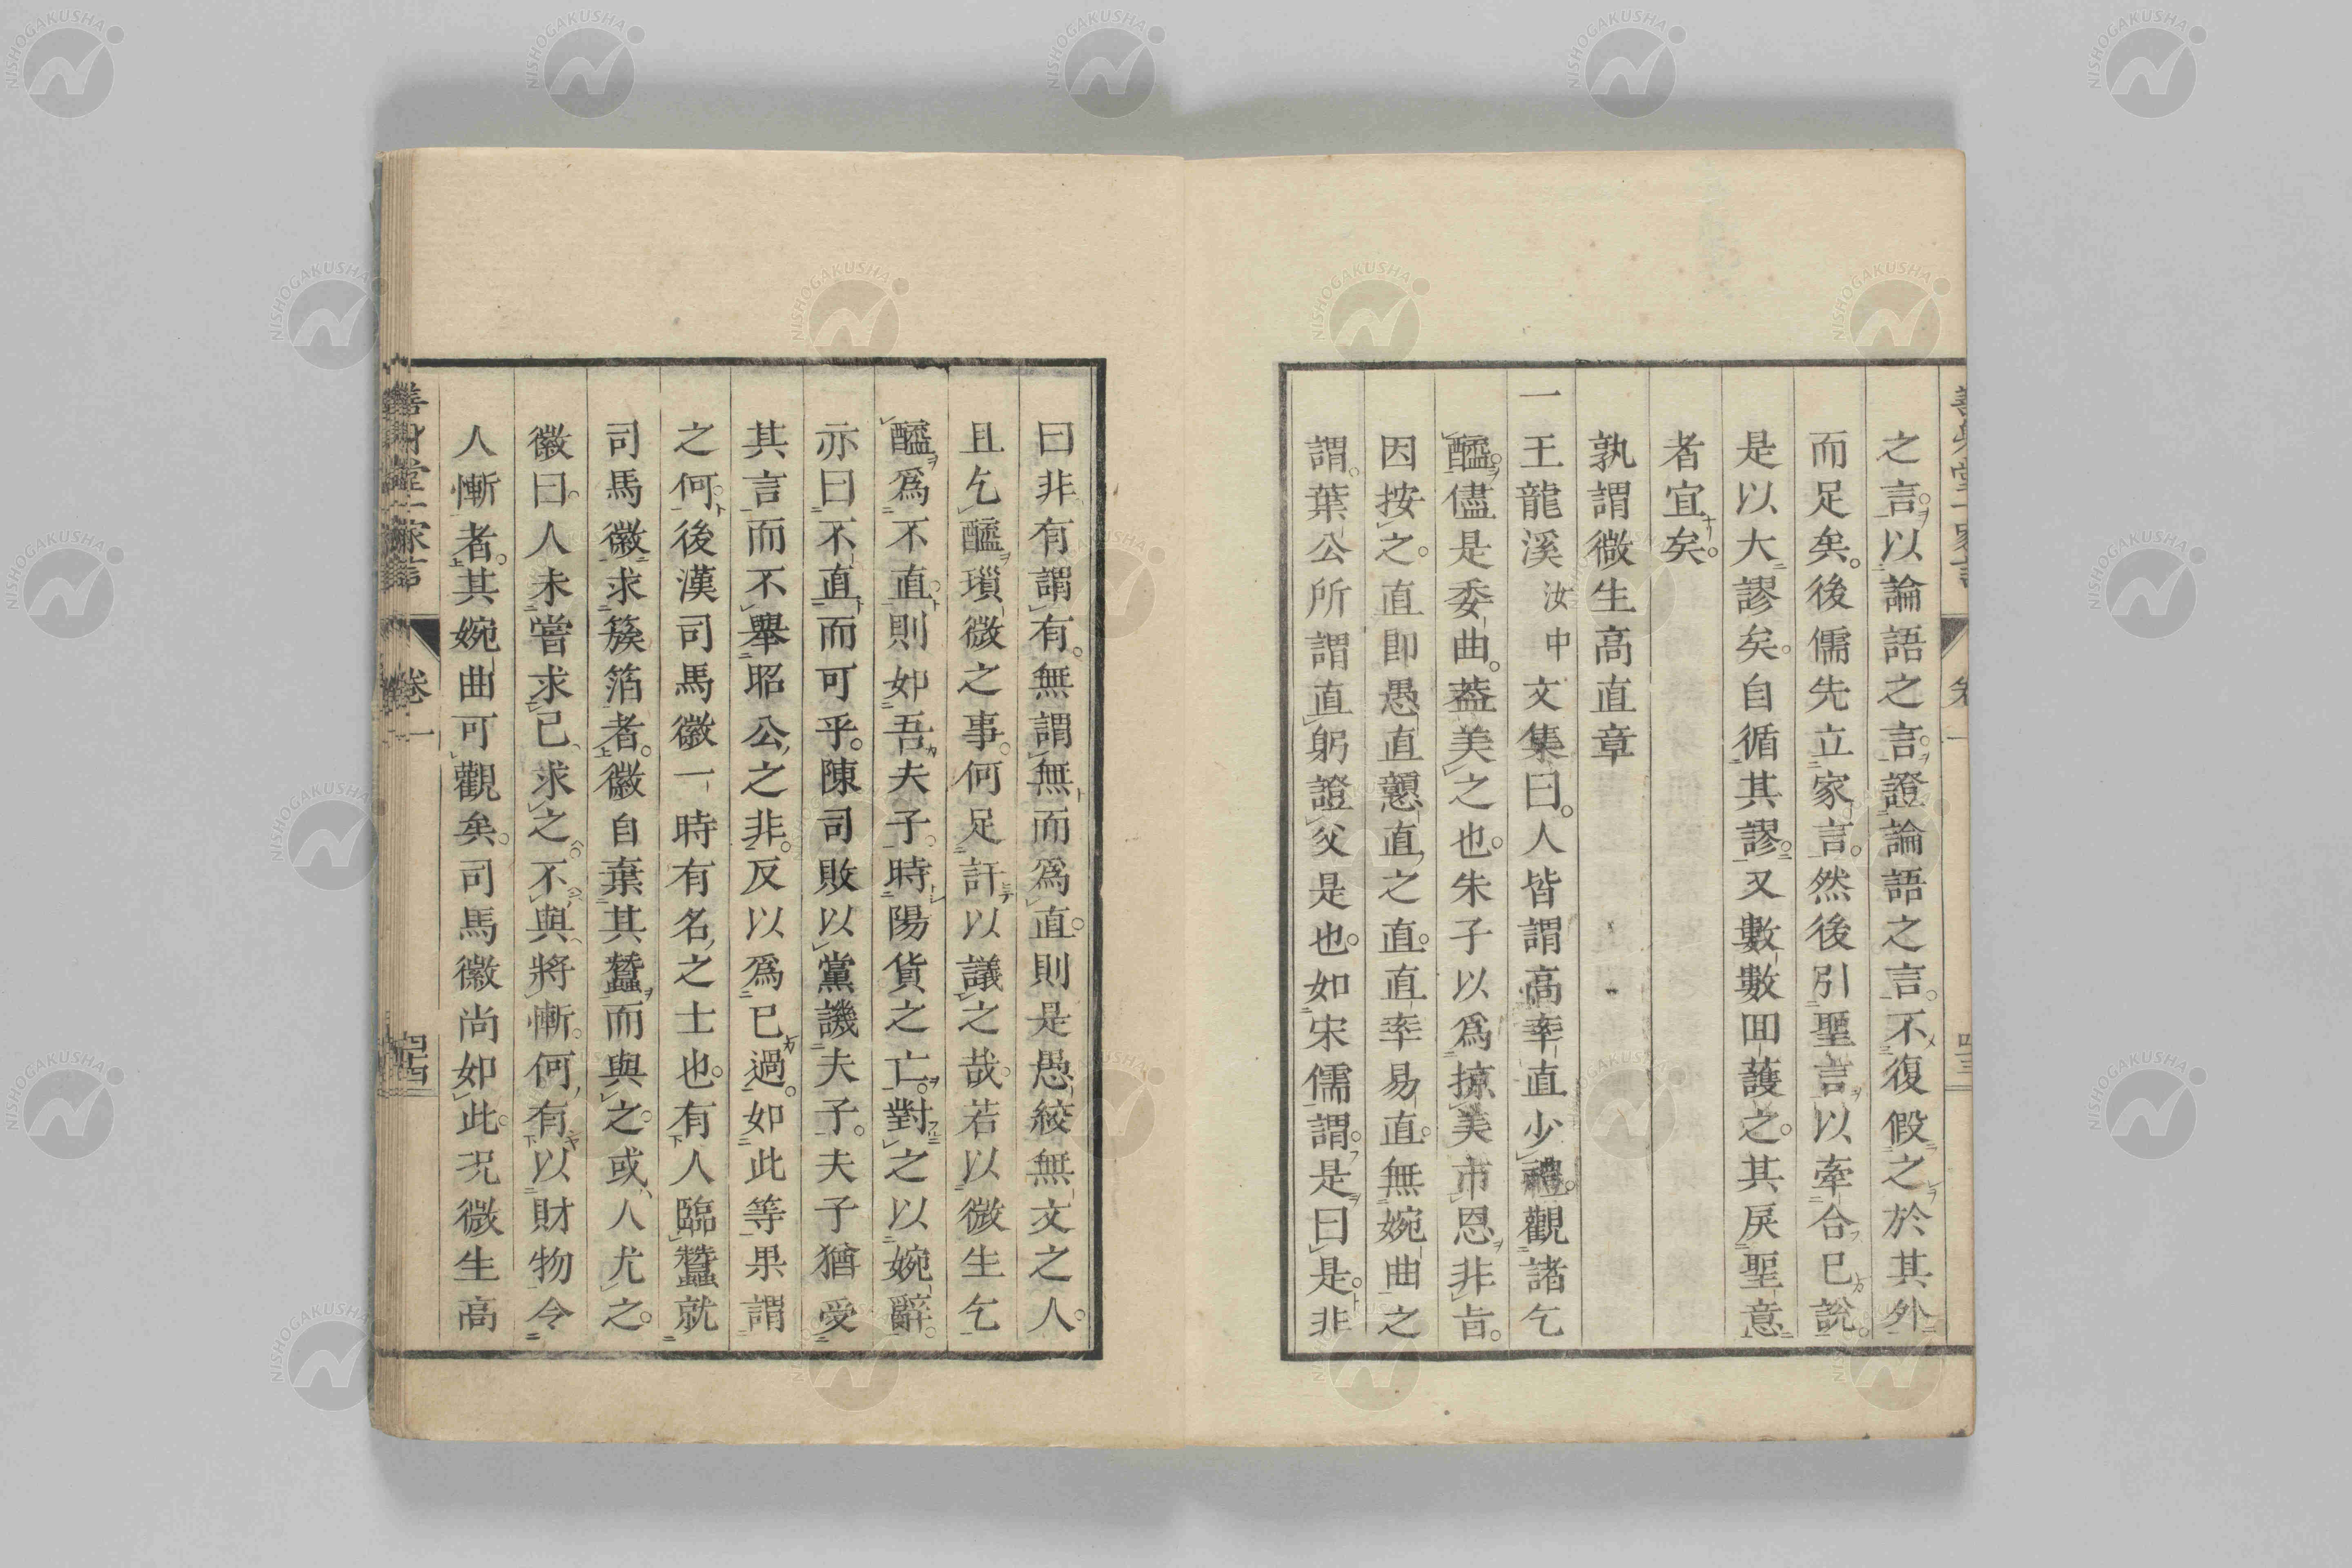 之言以論語之言證論語之言不復假之於其外
而足矣後儒先立家言然後引聖言以牽合己說
是以大謬矣自循其謬又數數回護之其戾聖意
者宜矣
孰謂微生高直章
一王龍溪汝中文集曰人皆謂高率直少禮觀諸乞
醯儘是委曲蓋美之也朱子以為掠美市恩非旨
因按之直即愚直戇直之直直率易直無婉曲之
謂葉公所謂直躬證父是也如宋儒謂是曰是非
曰非有謂有無謂無而爲直則是愚絞無文之人
且乞醯瑣微之事何足訐以議之哉若以微生乞
醯爲不直則如吾夫子時陽貨之亡對之以婉辭
亦曰不直而可乎陳司敗以黨譏夫子夫子猶受
其言而不舉昭公之非反以爲己過如此等果謂
之何後漢司馬徽一時有名之士也有人臨蠶就
司馬徽求簇箔者徽自棄其蠶而與之或人尤之
徽曰人未嘗求己求之不與將慚何有以財物令
人慚者其婉曲可觀矣司馬徽尚如此况微生高
卷一
四十四
NISHOGAKUSHA